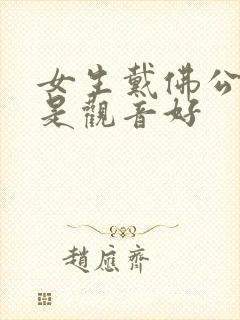 女生戴佛公
是觀音好
趙應齊